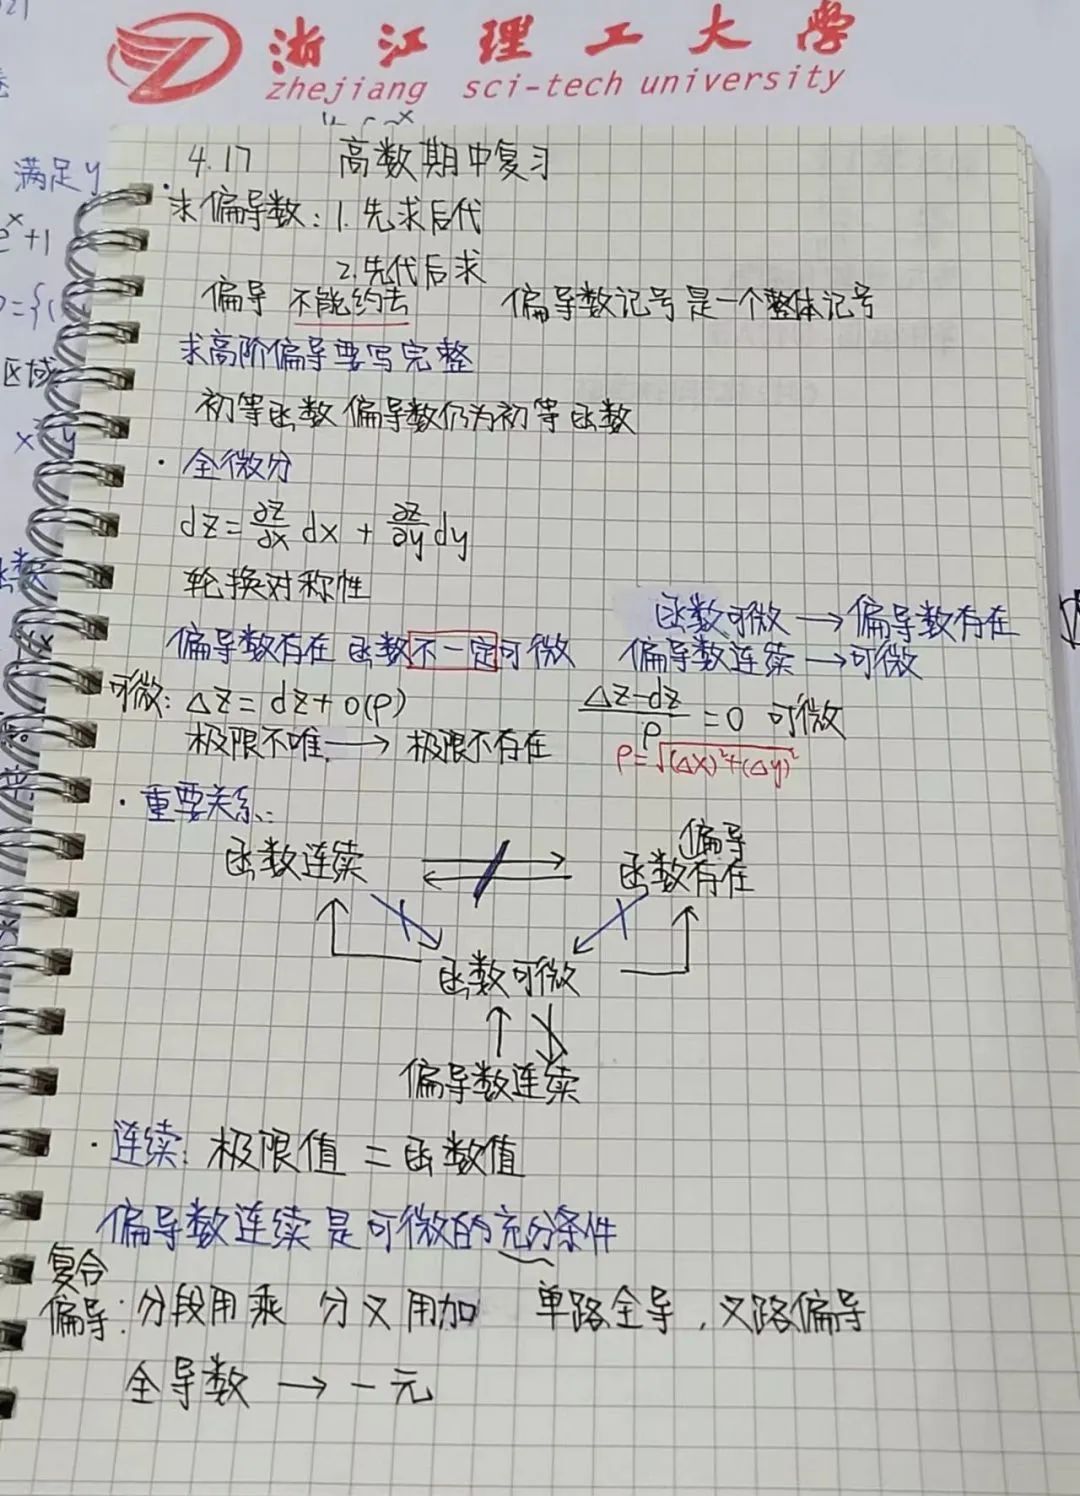 浙江理工大学
zhejiang sci-tech university
4.17 高数期中复习
满足y
· 求偏导数: 1. 先求后代
e^x+1
2. 先代后求
偏导 不能约去 偏导数记号是一个整体记号
求高阶偏导要写完整
区域
初等函数 偏导数仍为初等函数
· 全微分
dz = ∂z/∂x dx + ∂z/∂y dy
轮换对称性
函数可微 → 偏导数存在
偏导数存在 函数不一定可微 偏导数连续 → 可微
可微: Δz = dz + o(ρ) (Δz-dz)/ρ = 0 可微
极限不唯一 → 极限不存在 ρ=√((Δx)²+(Δy)²)
· 重要关系:
偏导
函数连续 函数存在
函数可微
偏导数连续
· 连续: 极限值 = 函数值
偏导数连续是可微的充分条件
复合
偏导: 分段用乘 分叉用加 单路全导, 叉路偏导
全导数 → 一元